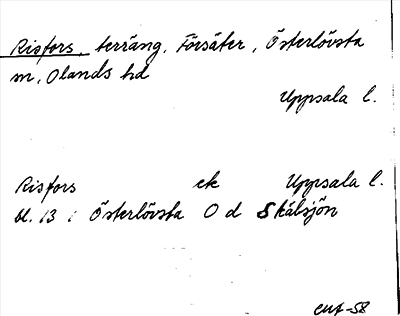 Risfors, terräng, Försäter, Österlövsta
m, Olands hd
Uppsala l.
Risfors ek Uppsala l.
bl. 13 i Österlövsta O d Skälsjön
-58